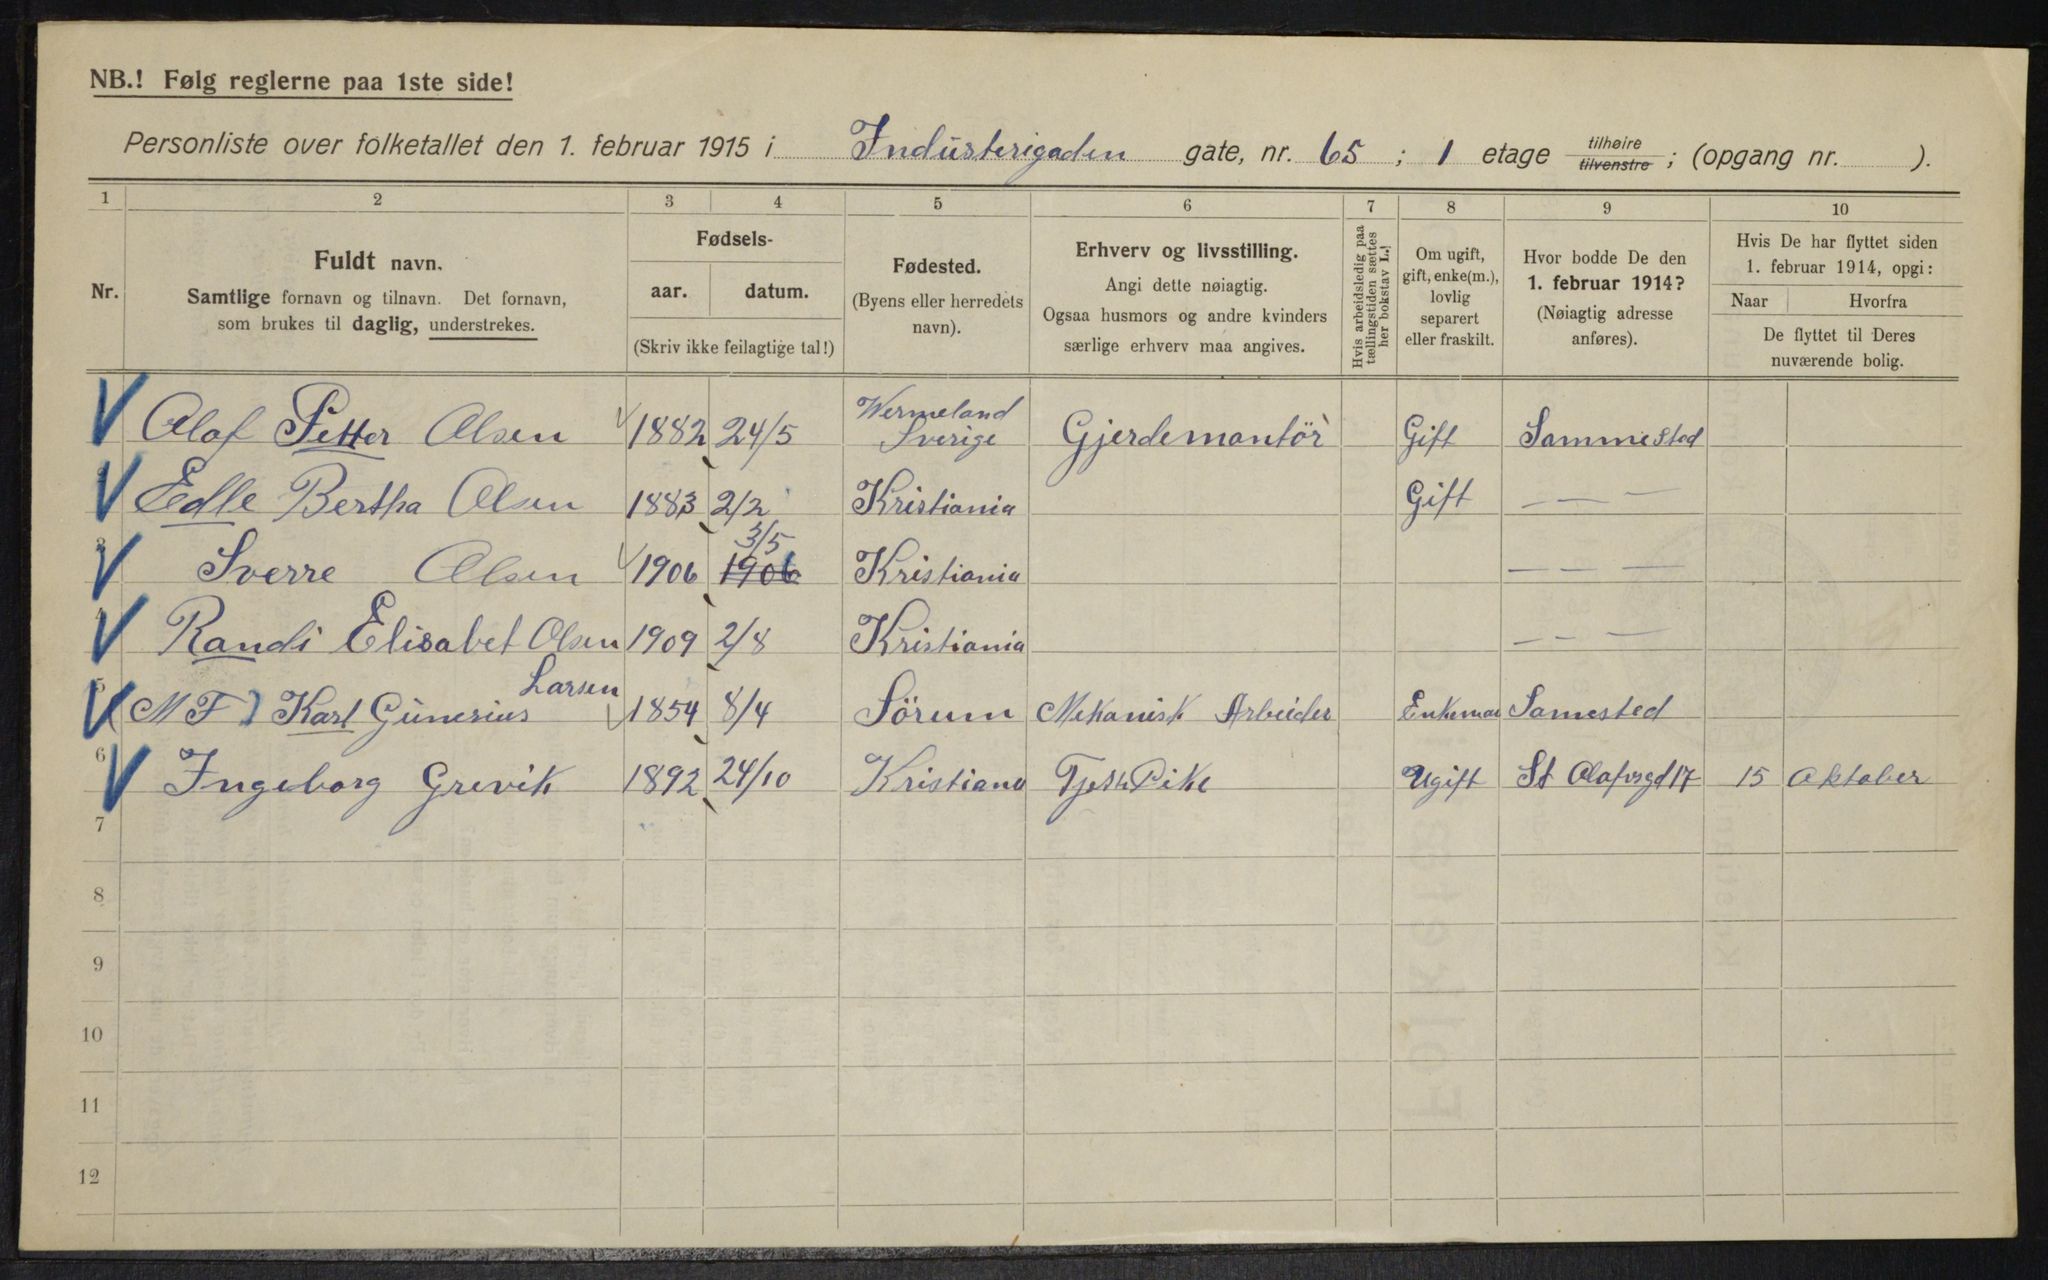 NB.! Følg reglerne paa 1ste side!
Personliste over folketallet den 1. februar 1915 i Industerigaden gate, nr. 65 ; 1 etage tilhøire tilvenstre ; (opgang nr. ).
1 2 3 4 5 6 7 8 9 10
Nr.
Fuldt navn.
Samtlige fornavn og tilnavn. Det fornavn,
som brukes til daglig, understrekes.
Fødsels-
aar. datum.
(Skriv ikke feilagtige tal!)
Fødested.
(Byens eller herredets
navn).
Erhverv og livsstilling.
Angi dette nøiagtig.
Ogsaa husmors og andre kvinders
særlige erhverv maa angives.
Hvis arbeidsledig paa
tællingstiden sættes
her bokstav L.!
Om ugift,
gift, enke(m.),
lovlig
separert
eller fraskilt.
Hvor bodde De den
1. februar 1914?
(Nøiagtig adresse
anføres).
Hvis De har flyttet siden
1. februar 1914, opgi:
Naar Hvorfra
De flyttet til Deres
nuværende bolig.
Olaf Petter Olsen 1882 24/5 Wermeland Sverige Gjerdemontör Gift Sammested
Edle Bertha Olsen 1883 2/2 Kristiania Gift — — —
3 Sverre Olsen 1906 1906 3/5 Kristiania — — —
4 Randi Elisabet Olsen 1909 2/8 Kristiania — — —
5 (M F) Karl Gunerius Larsen 1854 8/4 Sörum Mekanisk Arbeider Enkeman Samested
6 Ingeborg Grevik 1892 24/10 Kristiana Tjeste Pike Ugift St Olafsgd 17 15 Oktober
7
8
9
10
11
12